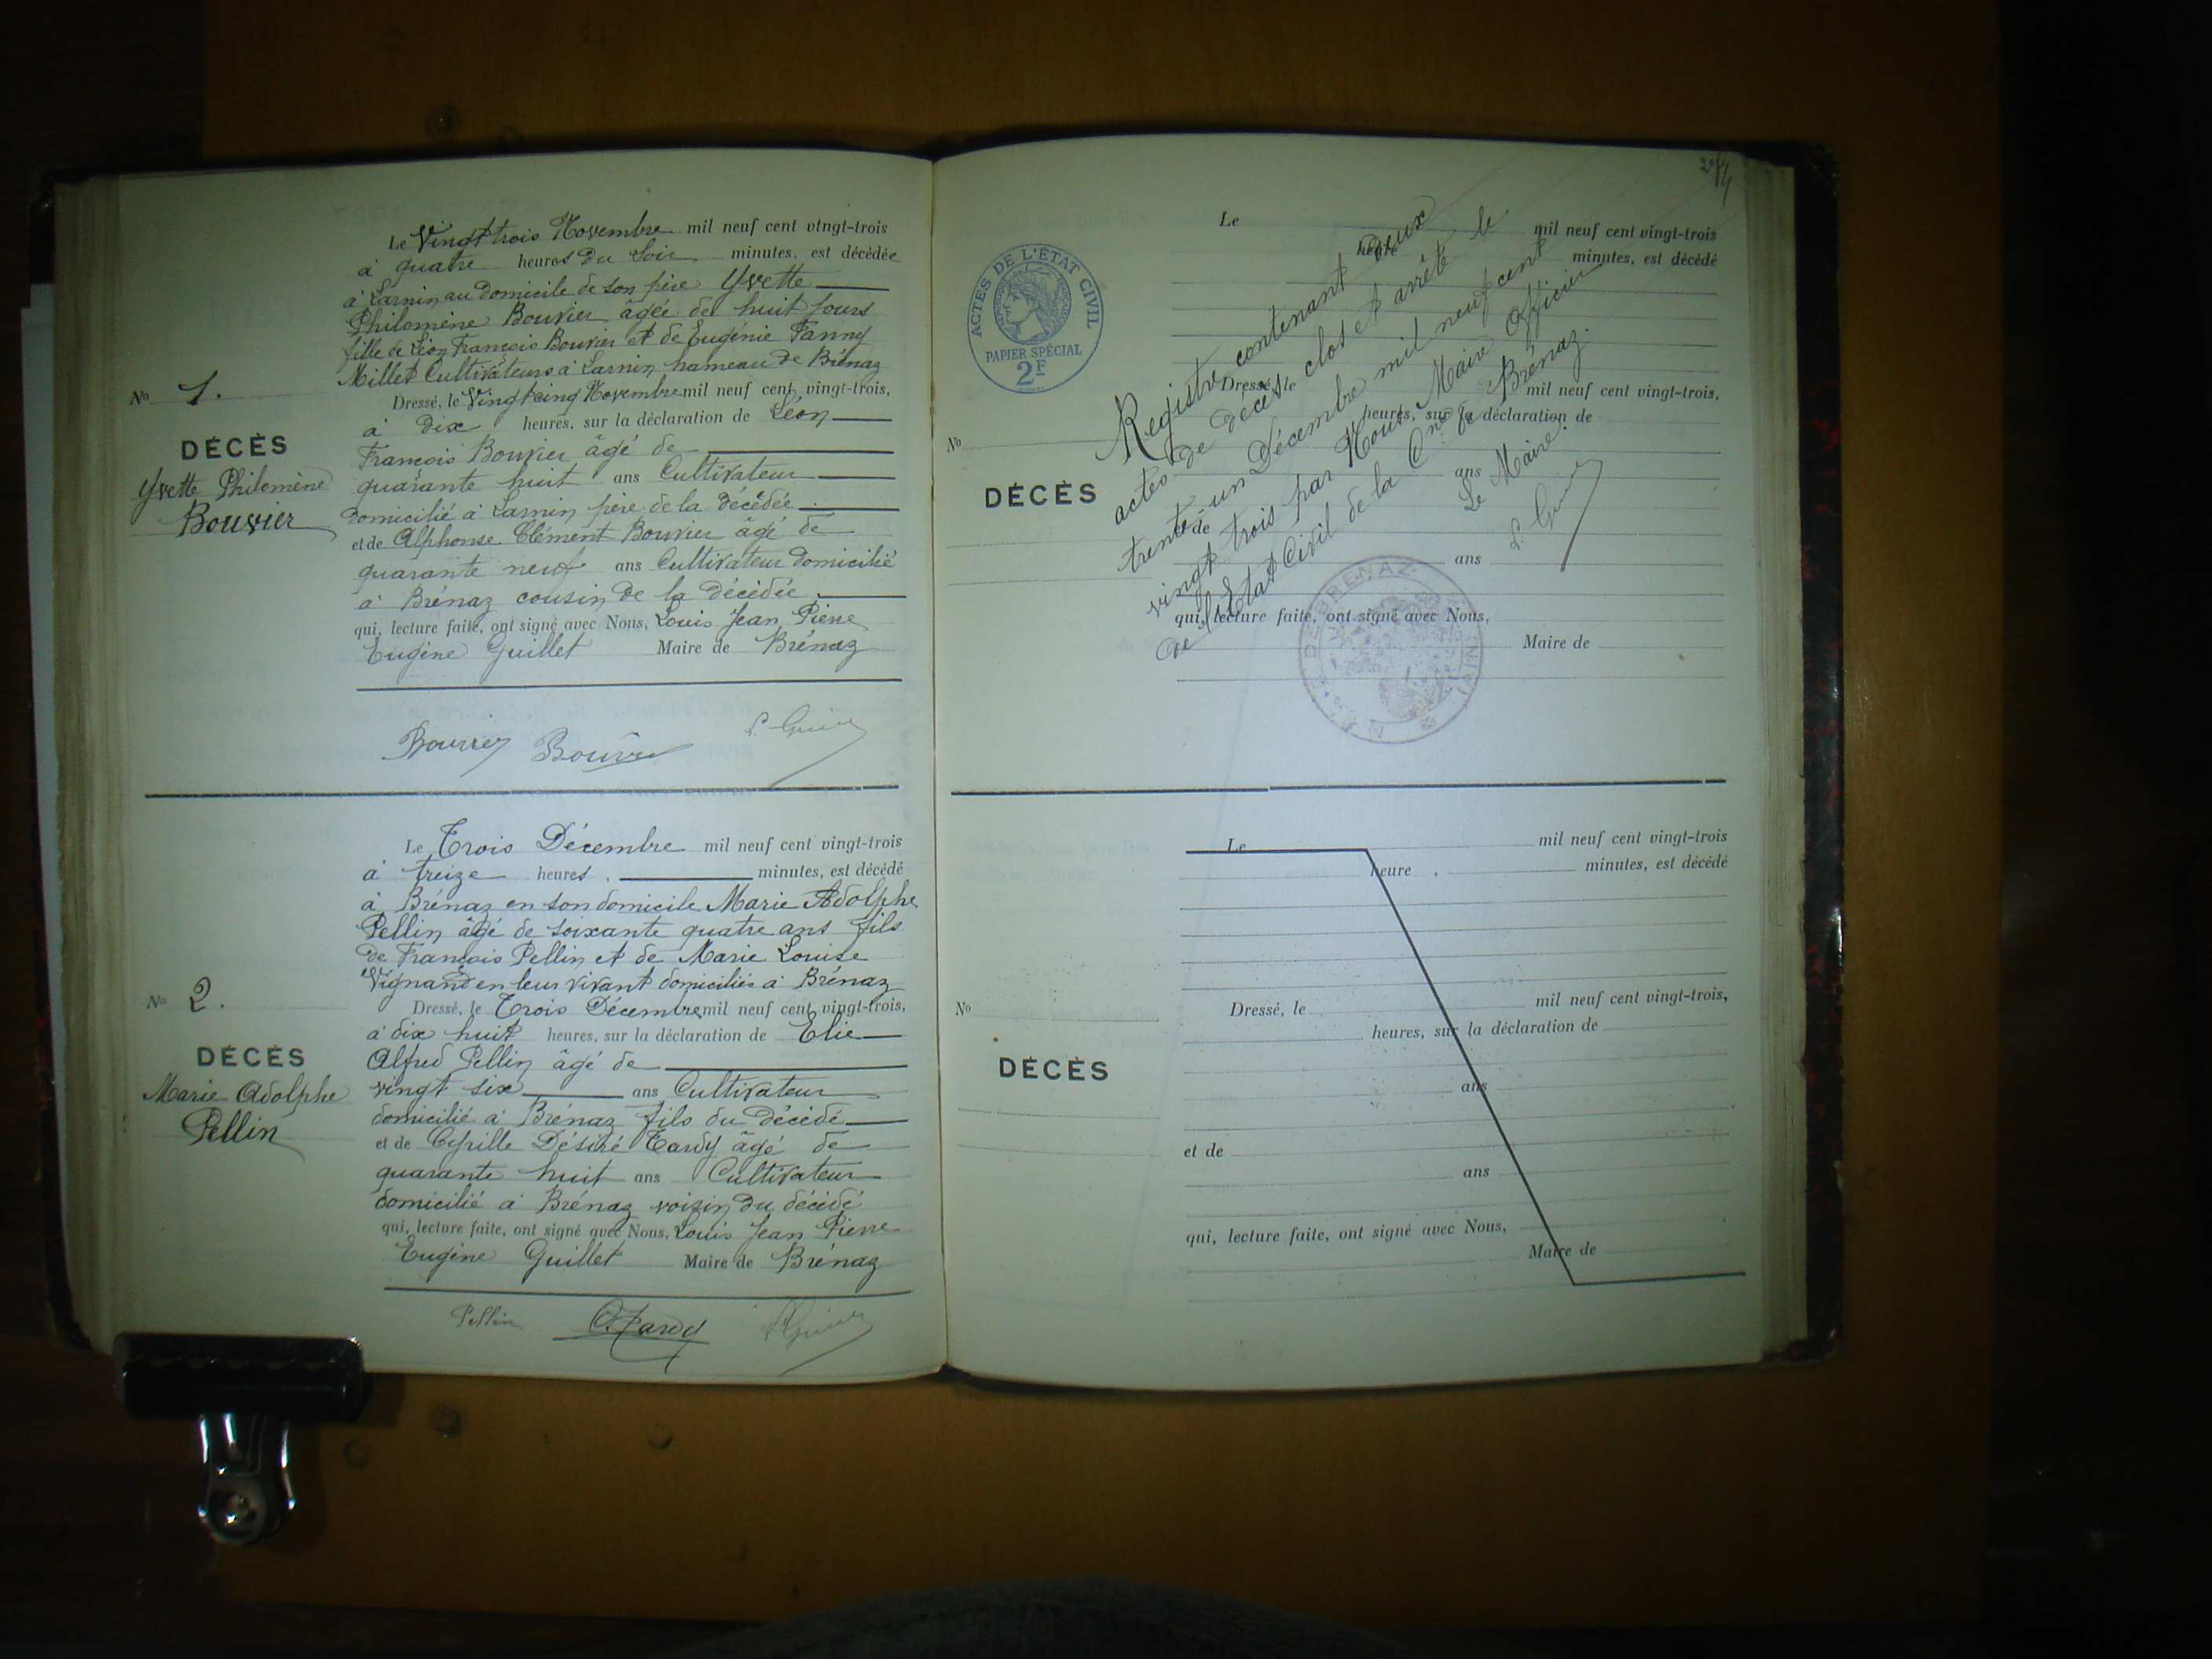 Le Vingt trois Novembre mil neuf cent vingt-trois
à quatre heures du soir minutes, est décédée
à Larnin au domicile de son père Yvette
Philomène Bouvier âgée de huit jours
fille de Léon François Bouvier et de Eugénie Fanny
Millet Cultivateurs à Larnin hameau de Brénaz
Dressé, le Vingt cinq Novembre mil neuf cent vingt-trois,
à dix heures, sur la déclaration de Léon
François Bouvier âgé de
quarante huit ans Cultivateur
domicilié à Larnin père de la décédée
et de Alphonse Clément Bouvier âgé de
quarante neuf ans Cultivateur domicilié
à Brénaz cousin de la décédée
qui, lecture faite, ont signé avec Nous, Louis Jean Pierre
Eugène Guillet Maire de Brénaz
No 1.
DÉCÈS
Yvette Philomène
Bouvier
Bouvier Bouvier
Le Trois Décembre mil neuf cent vingt-trois
à treize heures, minutes, est décédé
à Brénaz en son domicile Marie Adolphe
Pellin âgé de soixante quatre ans fils
de François Pellin et de Marie Louise
Vignand en leur vivant domiciliés à Brénaz
Dressé, le Trois Décembre mil neuf cent vingt-trois,
à dix huit heures, sur la déclaration de Elie
Alfred Pellin âgé de
vingt six ans Cultivateur
domicilié à Brénaz fils du décédé
et de Cyrille Désiré Tardy âgé de
quarante huit ans Cultivateur
domicilié à Brénaz voisin du décédé
qui, lecture faite, ont signé avec Nous, Louis Jean Pierre
Eugène Guillet Maire de Brénaz
No 2.
DÉCÈS
Marie Adolphe
Pellin
Pellin C. Tardy
ACTES DE L'ÉTAT CIVIL
PAPIER SPÉCIAL
2F
Le mil neuf cent vingt-trois
heure minutes, est décédé
Dressé, le mil neuf cent vingt-trois,
heures, sur la déclaration de
No
DÉCÈS
ans
et de
ans
qui, lecture faite, ont signé avec Nous,
Maire de
Registre contenant deux
actes de décès clos et arrêté le
trente un Décembre mil neuf cent
vingt trois par Nous, Maire Officier
de l'Etat Civil de la Cne de Brénaz.
Le Maire.
Le mil neuf cent vingt-trois
heure, minutes, est décédé
Dressé, le mil neuf cent vingt-trois,
heures, sur la déclaration de
No
DÉCÈS
ans
et de
ans
qui, lecture faite, ont signé avec Nous,
Maire de